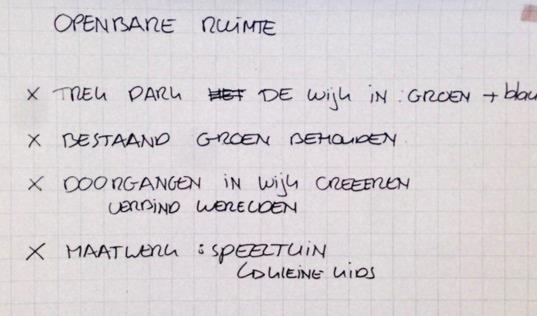 OPENBARE RUIMTE
× TREK PARK HET DE WIJK IN : GROEN + blau
× BESTAAND GROEN BEHOUDEN
× DOORGANGEN IN WIJK CREEEREN
VERBIND WERELDEN
× MAATWERK : SPEELTUIN
KLEINE KIDS